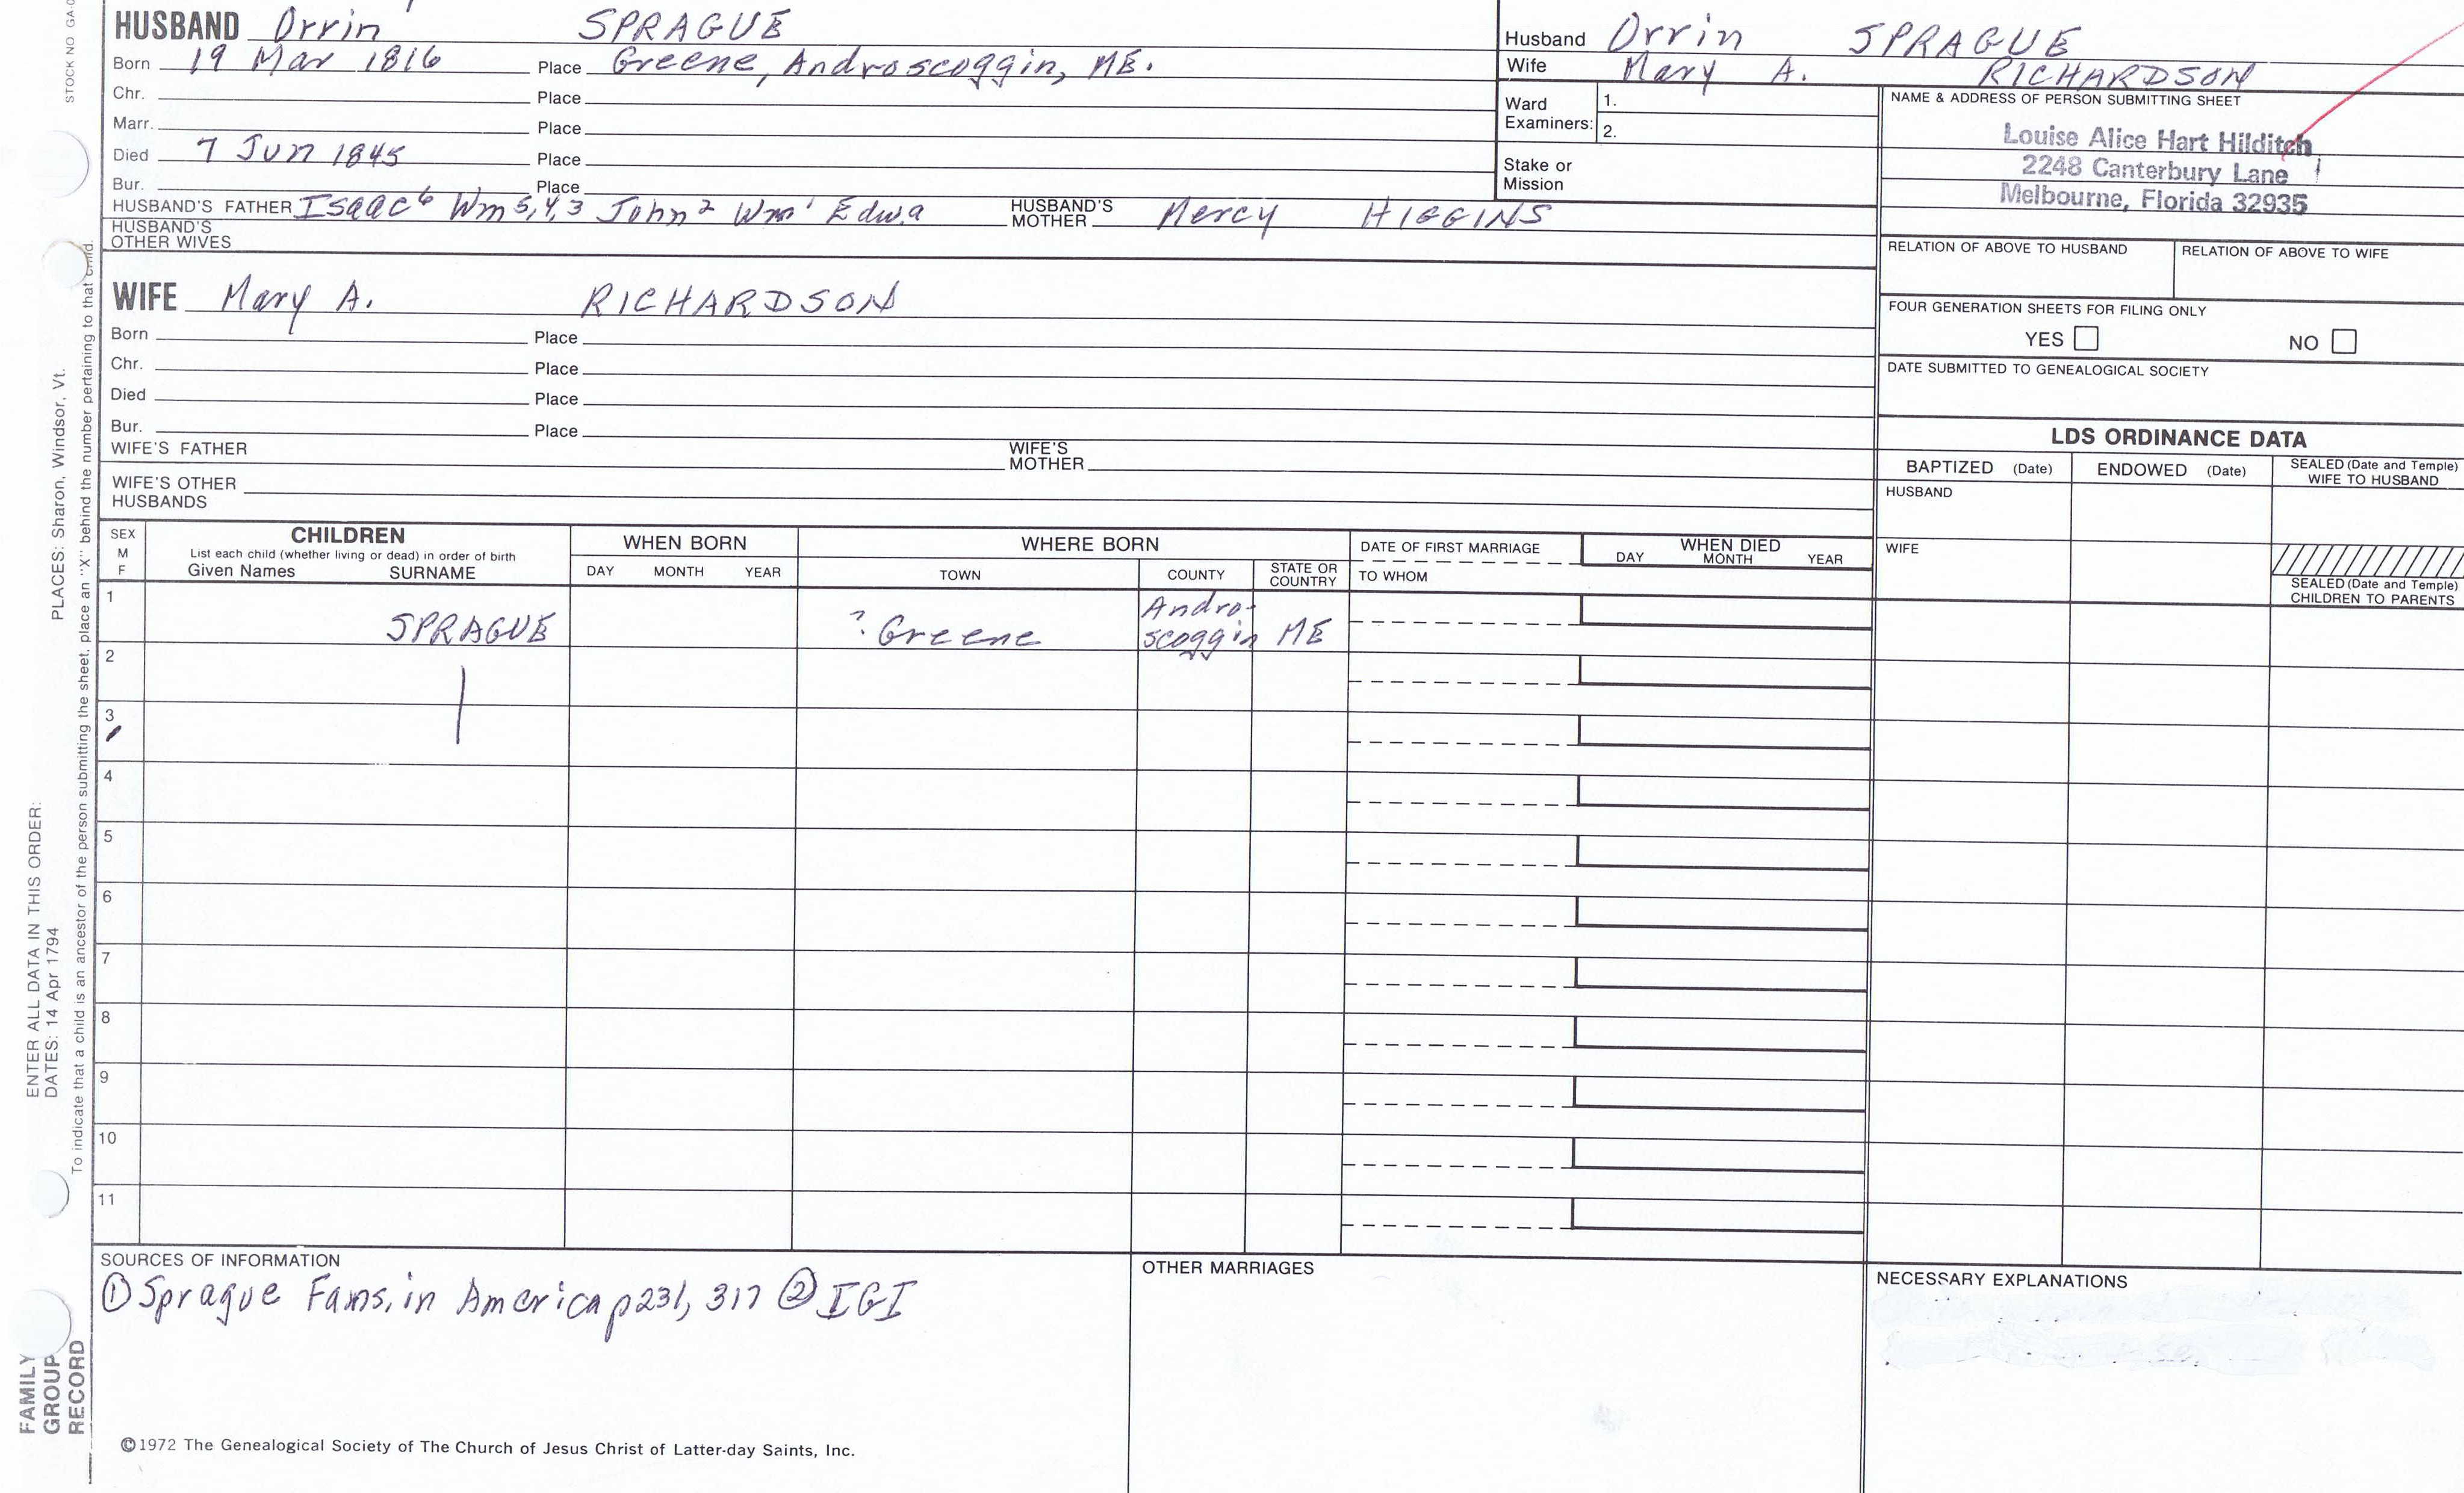 STOCK NO GA-
HUSBAND Orrin SPRAGUE
Born 19 Mar 1816 Place Greene, Androscoggin, ME.
Chr. Place
Marr. Place
Died 7 Jun 1845 Place
Bur. Place
HUSBAND'S FATHER Isaac⁶ Wm⁵,⁴,³ John² Wm¹ Edwa HUSBAND'S MOTHER Mercy HIGGINS
HUSBAND'S OTHER WIVES
WIFE Mary A. RICHARDSON
Born Place
Chr. Place
Died Place
Bur. Place
WIFE'S FATHER WIFE'S MOTHER
WIFE'S OTHER HUSBANDS
Husband Orrin SPRAGUE
Wife Mary A. RICHARDSON
Ward Examiners: 1.
2.
Stake or Mission
NAME & ADDRESS OF PERSON SUBMITTING SHEET
Louise Alice Hart Hilditch
2248 Canterbury Lane
Melbourne, Florida 32935
RELATION OF ABOVE TO HUSBAND RELATION OF ABOVE TO WIFE
FOUR GENERATION SHEETS FOR FILING ONLY
YES NO
DATE SUBMITTED TO GENEALOGICAL SOCIETY
LDS ORDINANCE DATA
BAPTIZED (Date) ENDOWED (Date) SEALED (Date and Temple) WIFE TO HUSBAND
HUSBAND
WIFE
SEALED (Date and Temple) CHILDREN TO PARENTS
SEX M F
CHILDREN
List each child (whether living or dead) in order of birth
Given Names SURNAME
WHEN BORN
DAY MONTH YEAR
WHERE BORN
TOWN COUNTY STATE OR COUNTRY
DATE OF FIRST MARRIAGE
TO WHOM
WHEN DIED
DAY MONTH YEAR
1 SPRAGUE ? Greene Andro-scoggin ME
2
3
4
5
6
7
8
9
10
11
SOURCES OF INFORMATION
① Sprague Fams. in America p231, 317 ② IGI
OTHER MARRIAGES
NECESSARY EXPLANATIONS
©1972 The Genealogical Society of The Church of Jesus Christ of Latter-day Saints, Inc.
FAMILY GROUP RECORD
ENTER ALL DATA IN THIS ORDER:
DATES: 14 Apr 1794 PLACES: Sharon, Windsor, Vt.
To indicate that a child is an ancestor of the person submitting the sheet, place an "X" behind the number pertaining to that child.